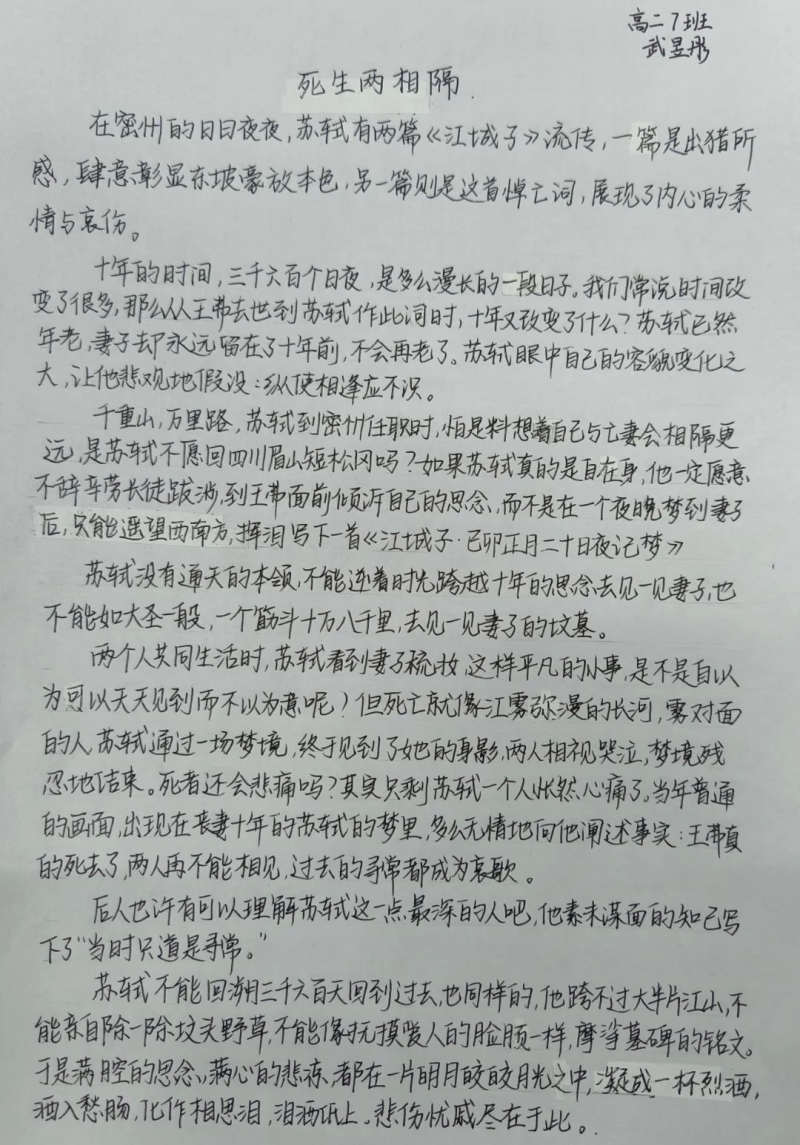 高二7班
武昱彤
死生两相隔
在密州的日日夜夜，苏轼有两篇《江城子》流传，一篇是出猎所
感，肆意彰显东坡豪放本色，另一篇则是这首悼亡词，展现了内心的柔
情与哀伤。
十年的时间，三千六百个日夜，是多么漫长的一段日子。我们常说时间改
变了很多，那么从王弗去世到苏轼作此词时，十年又改变了什么？苏轼已然
年老，妻子却永远留在了十年前，不会再老了。苏轼眼中自己的容貌变化之
大，让他悲观地假设：纵使相逢应不识。
千重山，万里路，苏轼到密州任职时，怕是料想着自己与亡妻会相隔更
远，是苏轼不愿回四川眉山短松冈吗？如果苏轼真的是自在身，他一定愿意
不辞辛劳长徒跋涉，到王弗面前倾诉自己的思念，而不是在一个夜晚梦到妻子
后，只能遥望西南方，挥泪写下一首《江城子·己卯正月二十日夜记梦》
苏轼没有通天的本领，不能逆着时光跨越十年的思念去见一见妻子，也
不能如大圣一般，一个筋斗十万八千里，去见一见妻子的坟墓。
两个人共同生活时，苏轼看到妻子梳妆，这样平凡的小事，是不是自以
为可以天天见到而不以为意呢？但死亡就像江雾弥漫的长河，雾对面
的人，苏轼通过一场梦境，终于见到了她的身影，两人相视哭泣，梦境残
忍地结束。死者还会悲痛吗？其实只剩苏轼一个人怅然心痛了。当年普通
的画面，出现在丧妻十年的苏轼的梦里，多么无情地向他阐述事实：王弗真
的死去了，两人再不能相见，过去的寻常都成为哀歌。
后人也许有可以理解苏轼这一点最深的人吧，他素未谋面的知己写
下了“当时只道是寻常。”
苏轼不能回溯三千六百天回到过去，也同样的，他跨不过大半片江山，不
能亲自除一除坟头野草，不能像抚摸爱人的脸颊一样，摩挲墓碑的铭文。
于是满腔的思念、满心的悲恸、都在一片明月皎皎月光之中，凝成一杯烈酒，
洒入愁肠，化作相思泪，泪洒纸上。悲伤忧戚尽在于此。